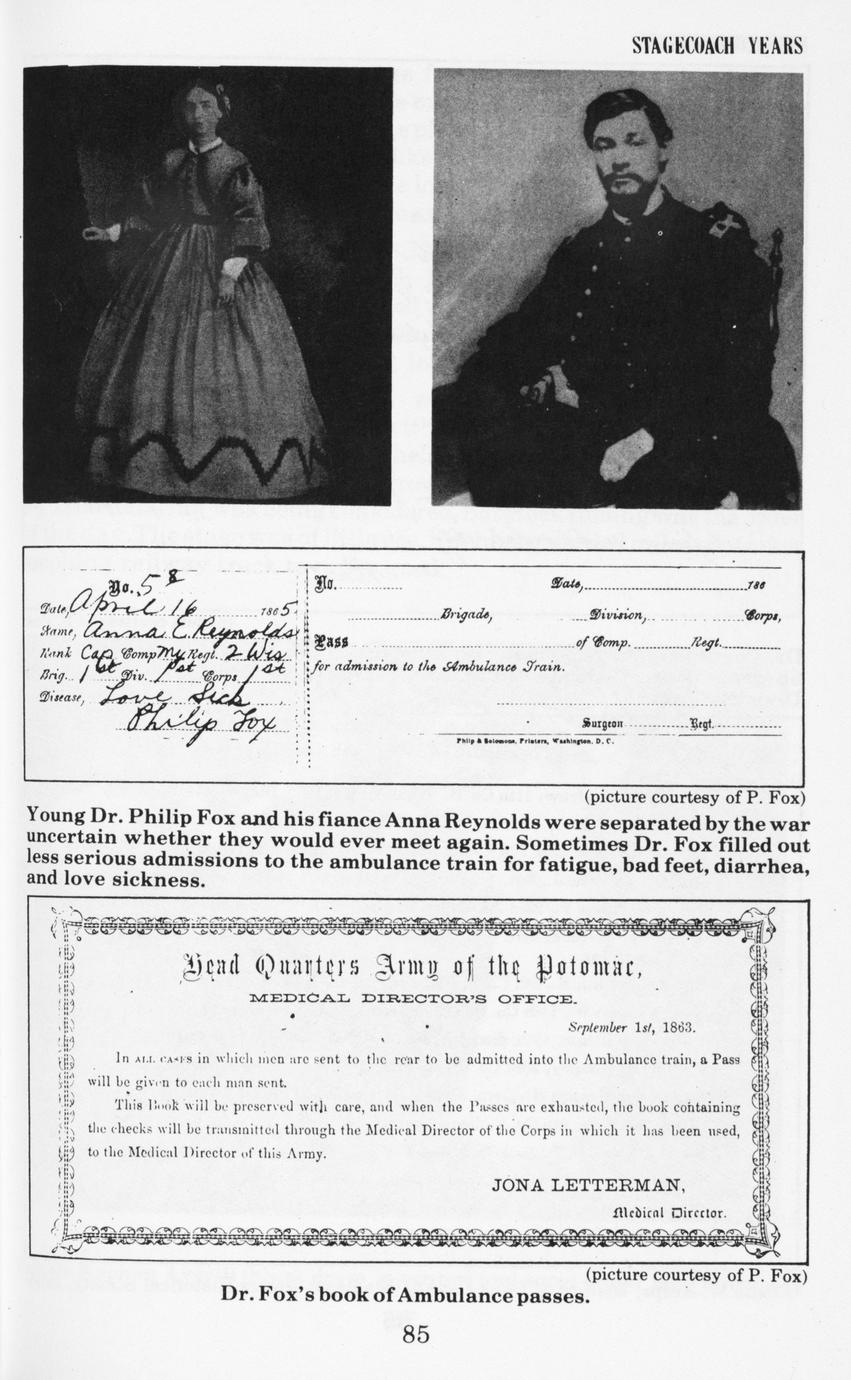 STAGECOACH YEARS
No. 58
Date, April 16 1865
Name, Anna E Reynolds
Rank Cap Comp My Regt. 2 Wis
Brig. 1st Div. 1st Corps 1st
Disease, Love Sick
Philip Fox
No. Date, 186
Brigade, Division, Corps,
Pass of Comp. Regt.
for admission to the Ambulance Train.
Surgeon Regt.
Philp & Solomons, Printers, Washington, D. C.
(picture courtesy of P. Fox)
Young Dr. Philip Fox and his fiance Anna Reynolds were separated by the war
uncertain whether they would ever meet again. Sometimes Dr. Fox filled out
less serious admissions to the ambulance train for fatigue, bad feet, diarrhea,
and love sickness.
Head Quarters Army of the Potomac,
MEDICAL DIRECTOR'S OFFICE.
September 1st, 1863.
In ALL CASES in which men are sent to the rear to be admitted into the Ambulance train, a Pass
will be given to each man sent.
This Book will be preserved with care, and when the Passes are exhausted, the book containing
the checks will be transmitted through the Medical Director of the Corps in which it has been used,
to the Medical Director of this Army.
JONA LETTERMAN,
Medical Director.
(picture courtesy of P. Fox)
Dr. Fox's book of Ambulance passes.
85